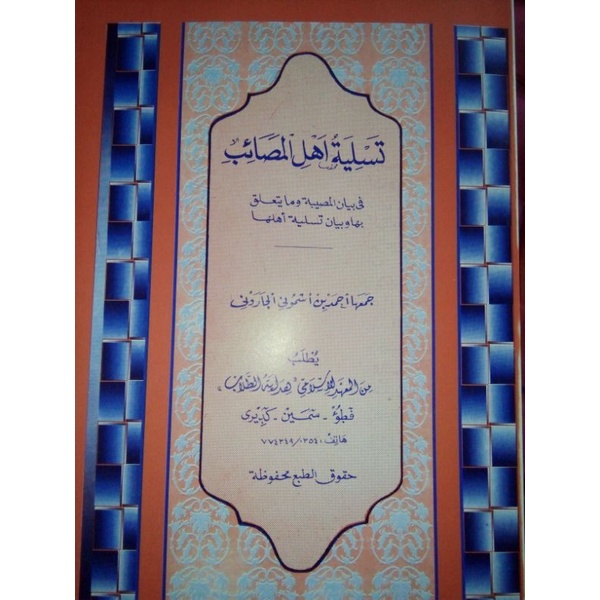 تسلية اهل المصائب
في بيان المصيبة وما يتعلق
بها وبيان تسلية أهلها
جمعها احمد بن أسموني الجاروني
يُطلب
من المعهد الإسلامي "هداية الطلاب"
فطوء - سمين - كديرى
هاتف: ٠٣٥٤/ ٧٧٤٣٤٩
حقوق الطبع محفوظة